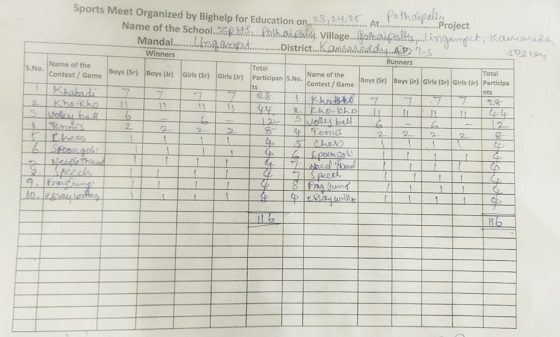 Sports Meet Organized by Bighelp for Education on 23,24,25 At Pothaipally Project
Name of the School ZPHS, Pothaipally Village Pothaipally, Lingampet, Kamareddy
Mandal Lingampet District Kamareddy A.P
Winners Runners
S.No. Name of the Contest / Game Boys (Sr) Boys (Jr) Girls (Sr) Girls (Jr) Total Participants S.No. Name of the Contest / Game Boys (Sr) Boys (Jr) Girls (Sr) Girls (Jr) Total Participants
1 Khabadi 7 7 7 7 28 1 7 7 7 7 28
2 Kho-Kho 11 11 11 11 44 2 Kho-Kho 11 11 11 11 44
3 Volley ball 6 - 6 - 12 3 Volley ball 6 - 6 - 12
4 Tennis 2 2 2 2 8 4 Tennis 2 2 2 2 8
5 Chess 1 1 1 1 4 5 Chess 1 1 1 1 4
6 1 1 1 1 4 6 1 1 1 1 4
7 1 1 1 1 4 7 1 1 1 1 4
8 Speech 1 1 1 1 4 7 Speech 1 1 1 1 4
9. 1 1 1 1 4 8 1 1 1 1 4
10. 1 1 1 1 4 1 1 1 1 4
116 116